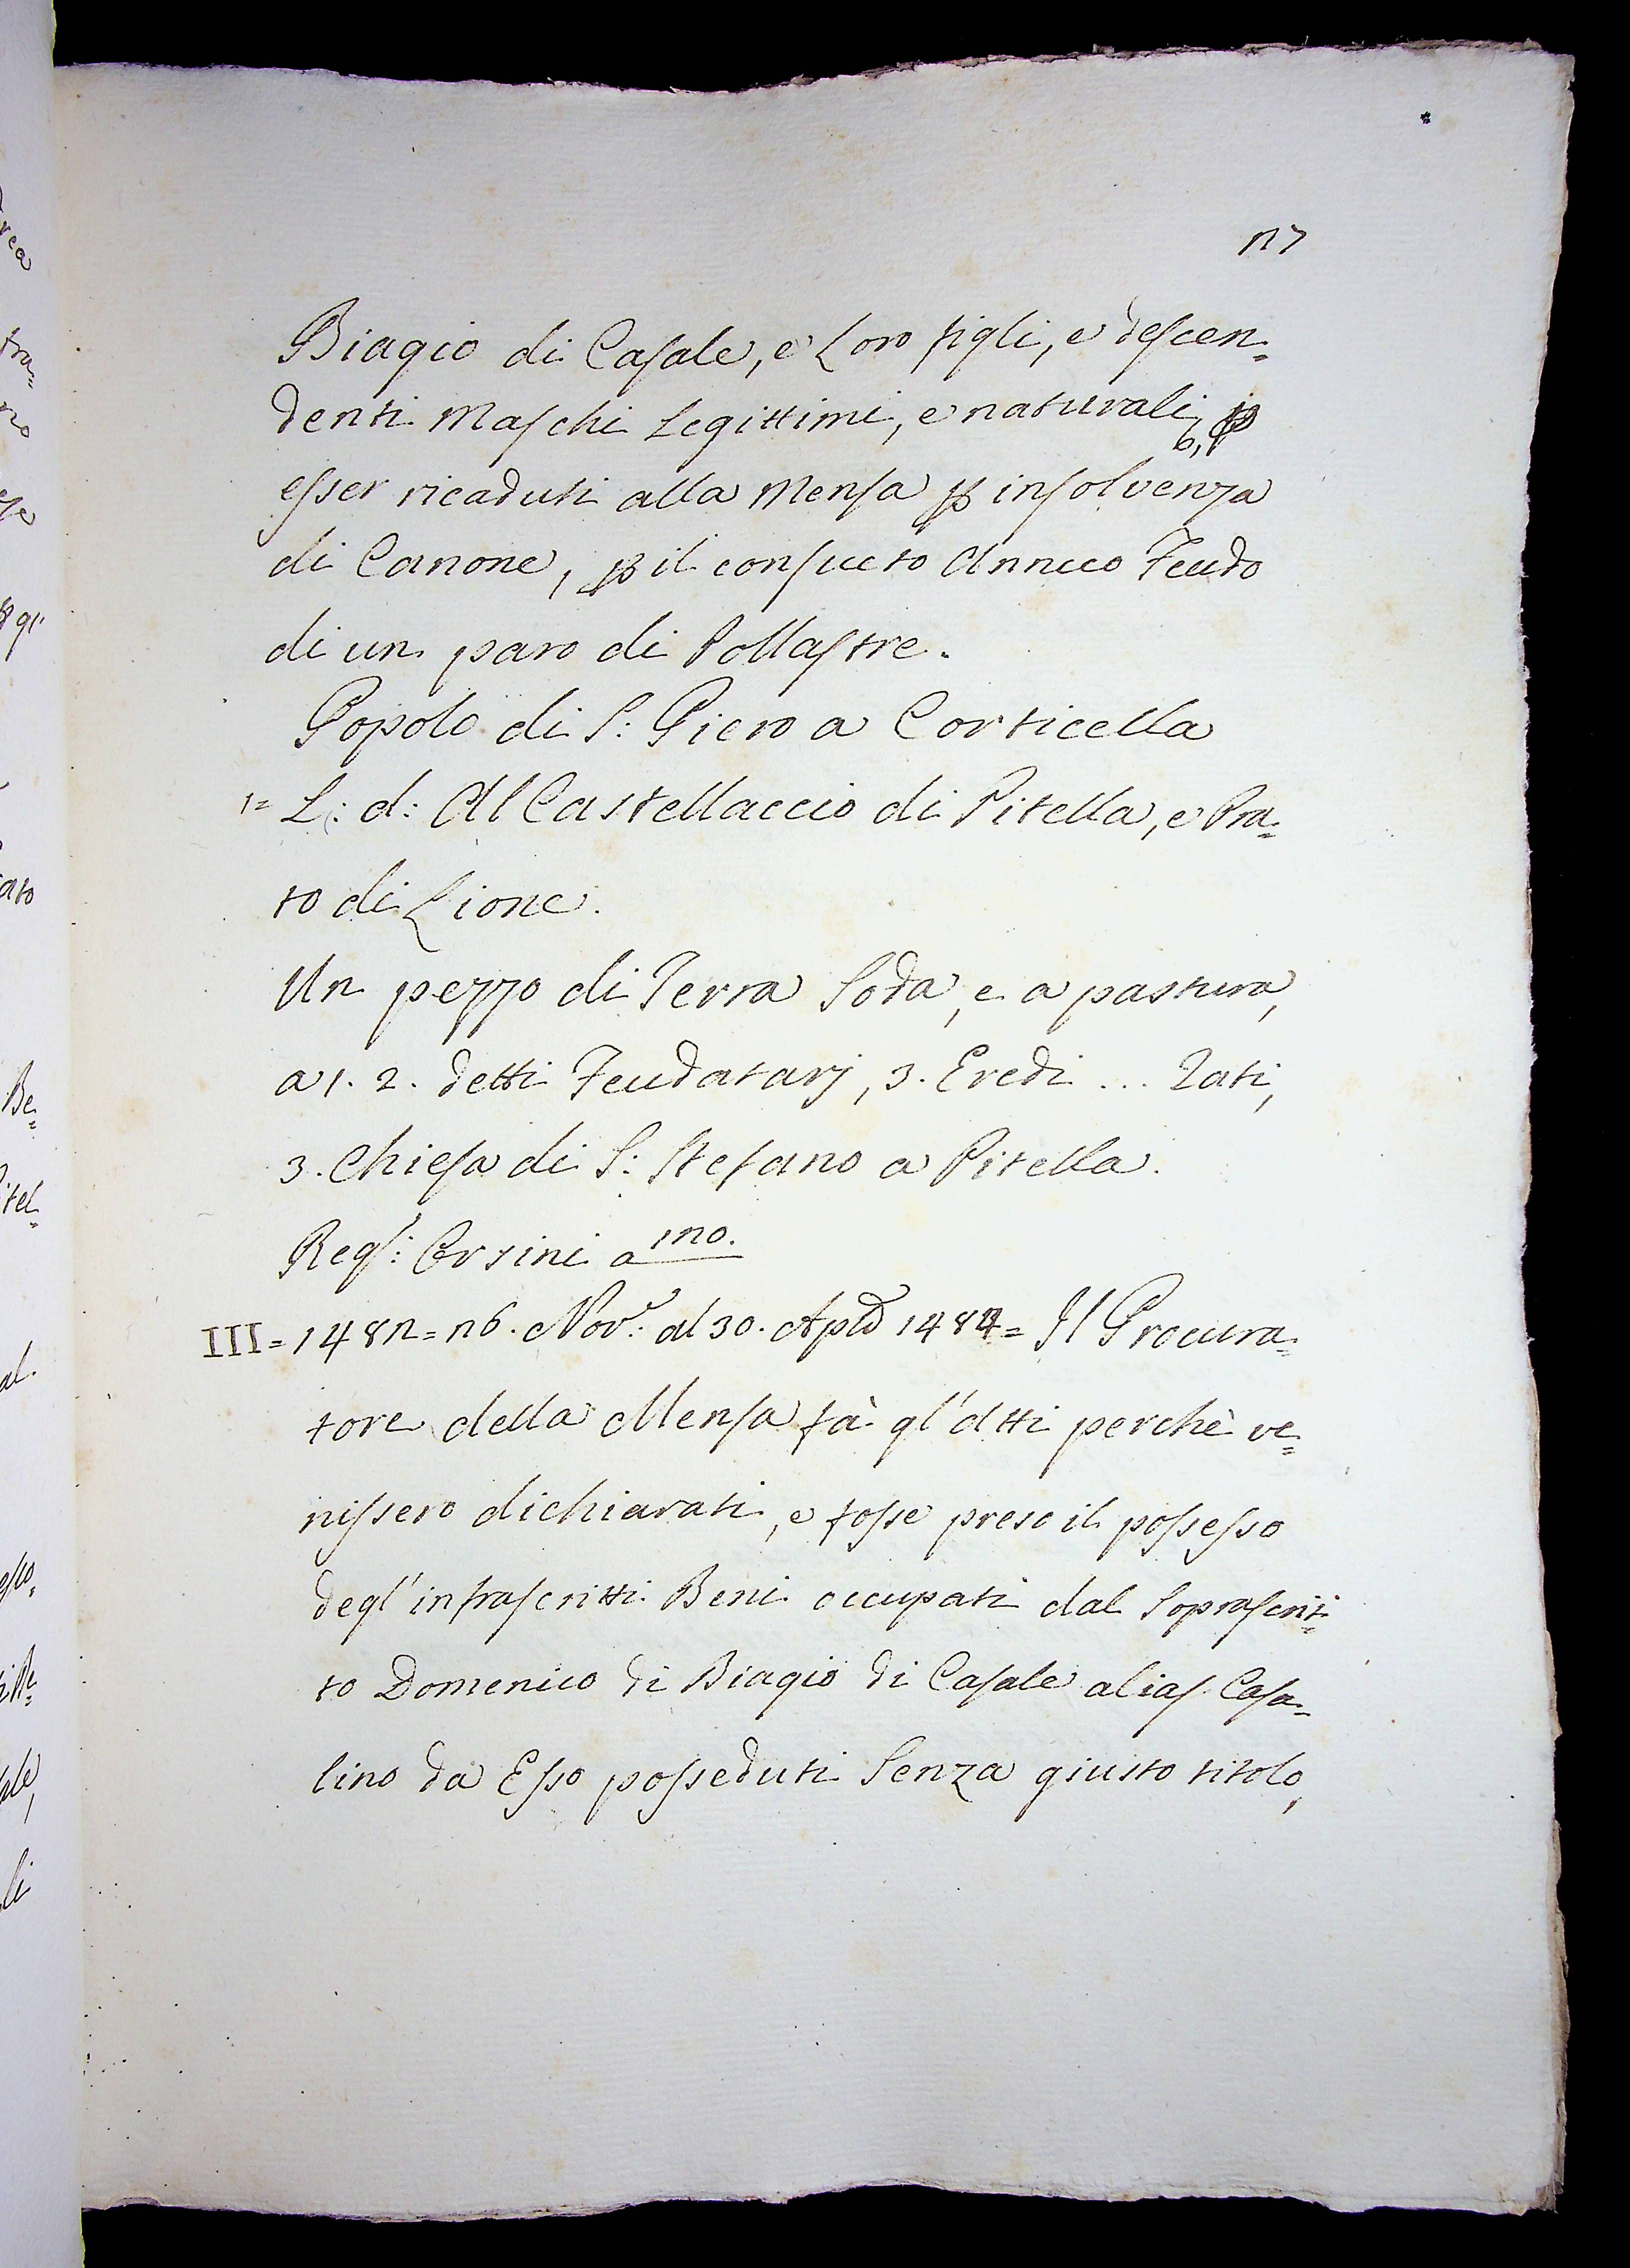 27
Biagio di Casale, e Loro figli, e descen=
denti Maschi Legittimi, e naturali, p
esser ricaduti alla Mensa p insolvenza
di Canone, p il consueto Annuo Feudo
di un paro di Pollastre.
Popolo di S: Piero a Corticella
1= L: d: Al Castellaccio di Pitella, e Pra=
to di Lione.
Un pezzo di Terra Soda, e a pastura,
a 1. 2. detti Feudatarj, 3. Eredi ... Tati,
3. Chiesa di S: Stefano a Pitella.
Reg: Corsini a 120.
III = 1482 = 26. Nov: al 30. Aple 1484 = Il Procura=
tore della Mensa fà gl'Atti perchè ve=
nissero dichiarati, e fosse preso il possesso
degl'infrascritti Beni occupati dal Soprascrit=
to Domenico di Biagio di Casale alias Casa=
lino da Esso posseduti Senza giusto titolo,